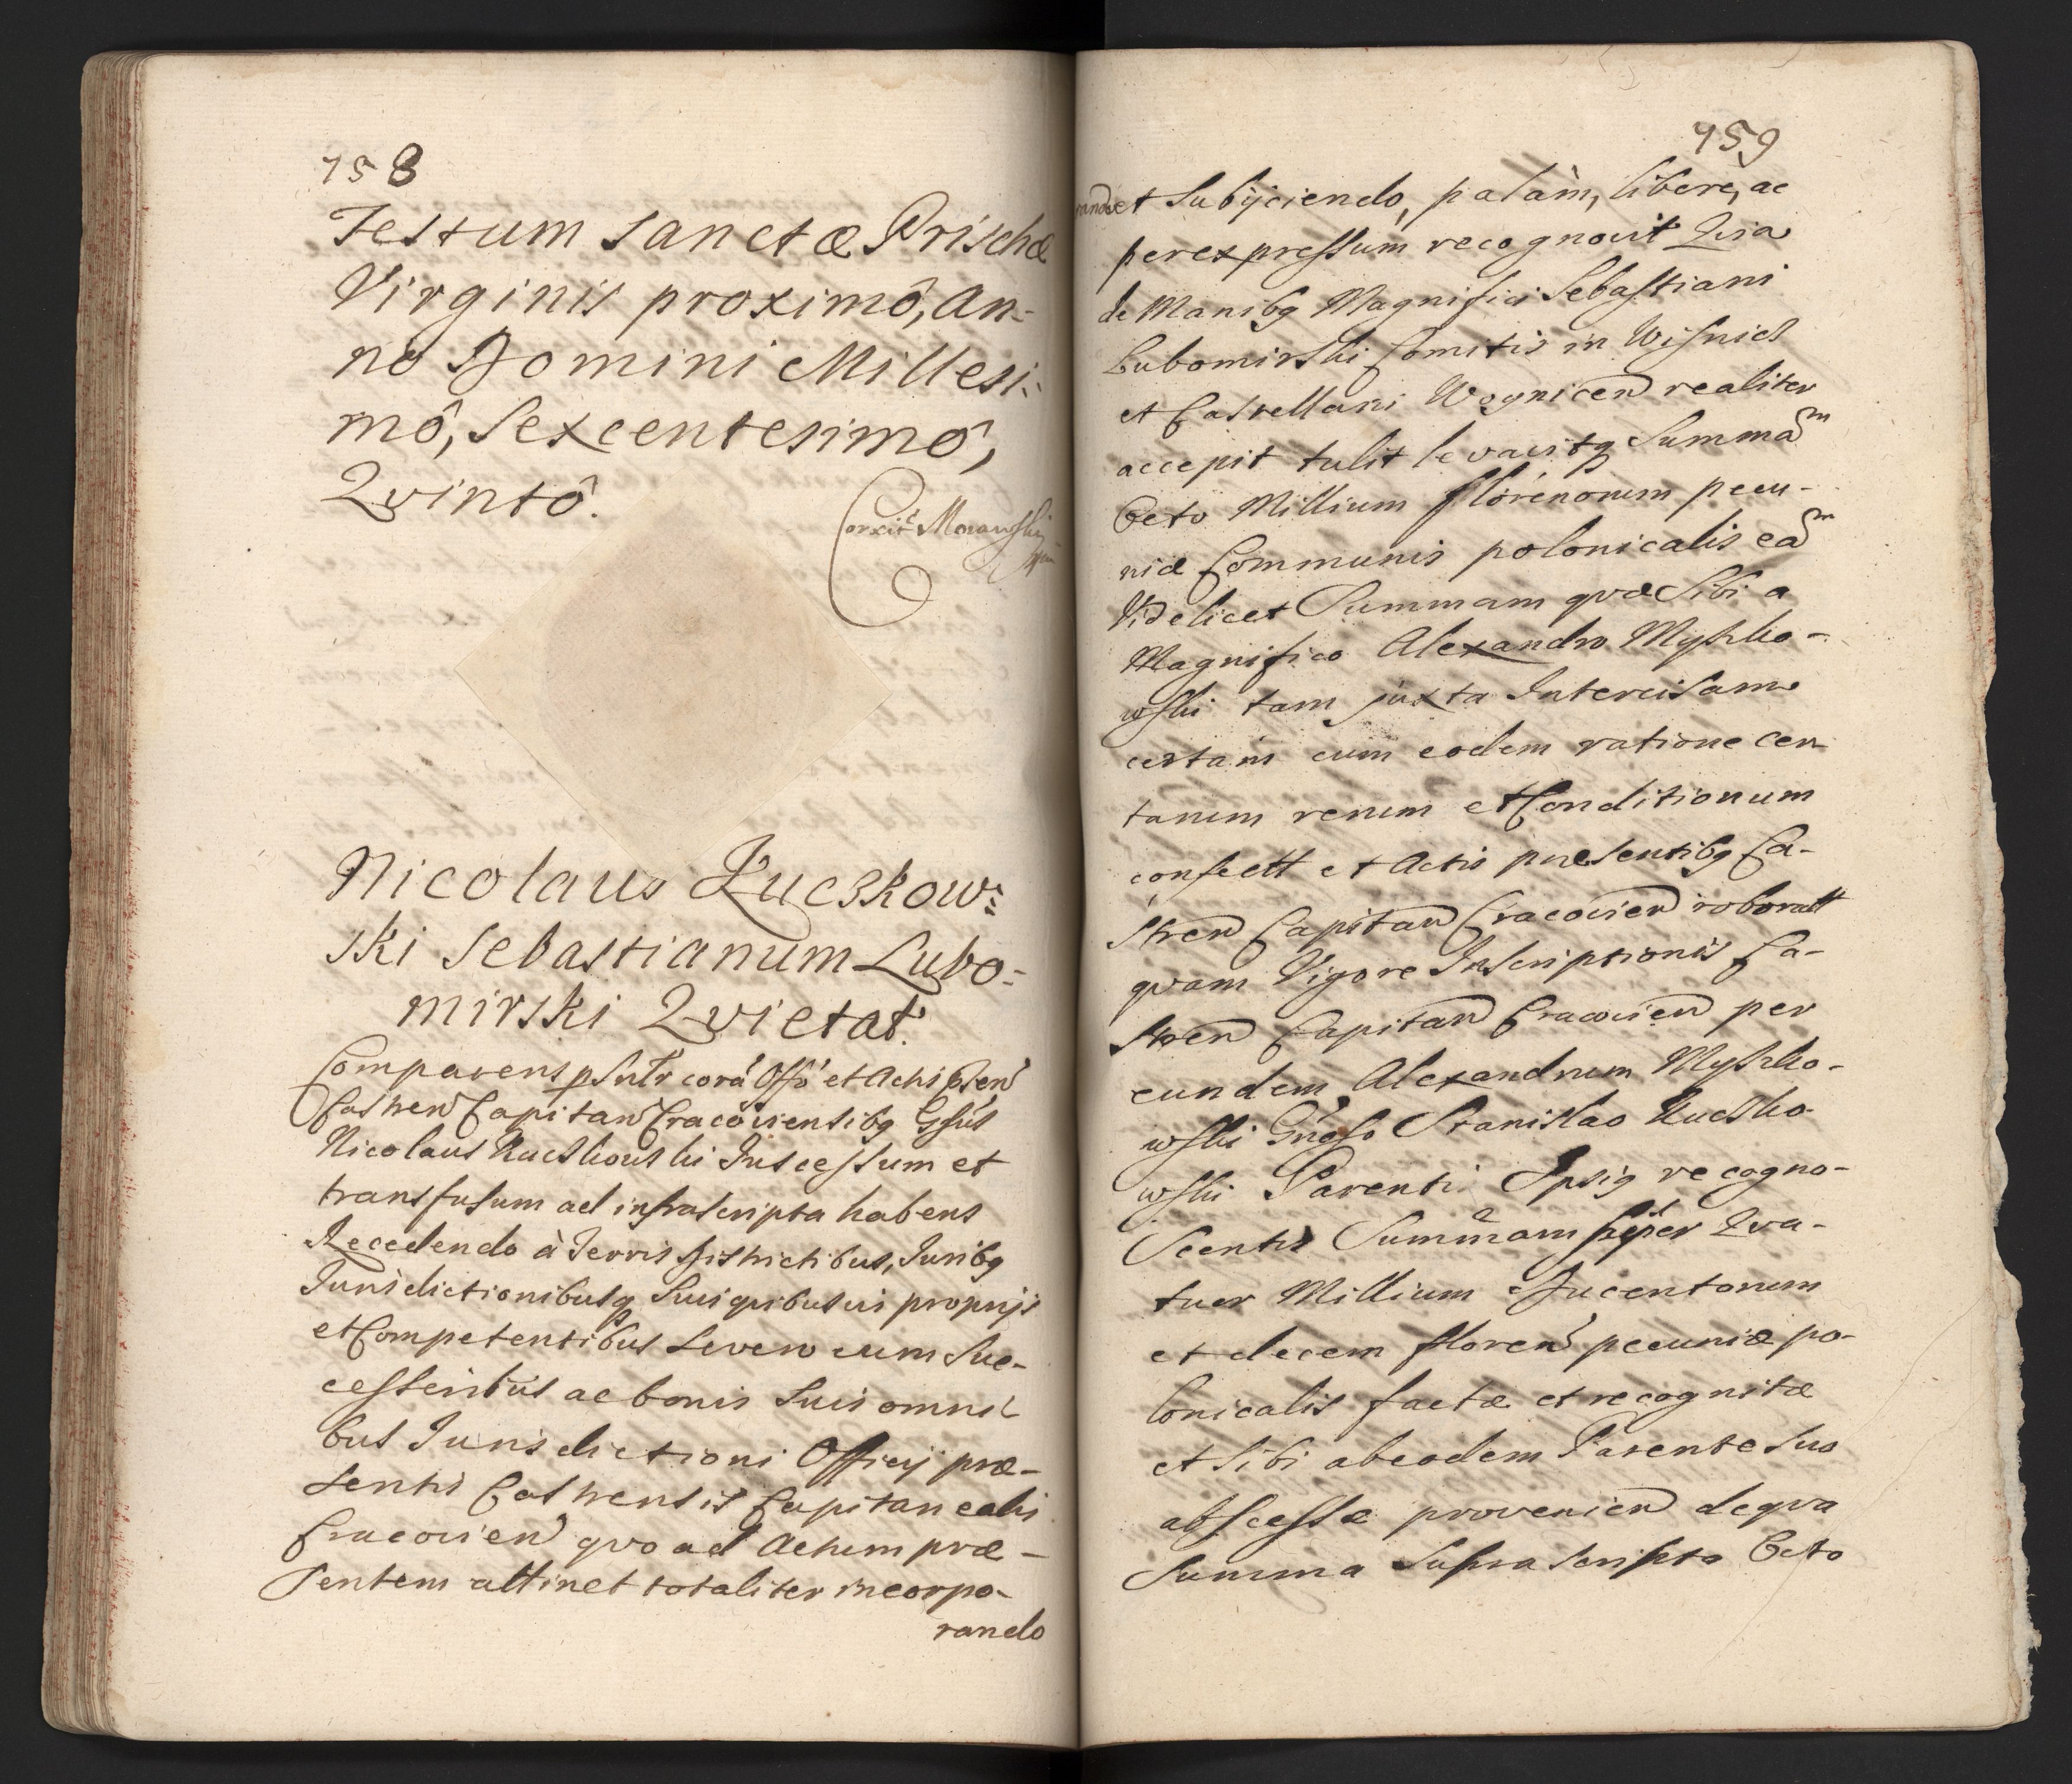 758
Festum sanctæ Prischæ
Virginis proximô, An-
no Domini Millesi-
mô, Sexcentesimô,
Qvintô.
Corxit Morawski
Nicolaus Ruczkow-
ski Sebastianum Lubo-
mirski Qvietat.
Comparens psntr corã Offo et Actis psen
Castren Capitan Cracoviensibq Gsus
Nicolaus Ruczkowski Juscessum et
transfusum ad infrascripta habens
Recedendo à Terris Districtibus, Juribq
Jurisdictionibusq Suis quibusvis proprijs
et Competentibus Seven cum Suc-
cessoribus ac bonis Suis omni
bus Jurisdictioni Officij præ-
sentis Castrensis Capitanealis
Cracovien qvo ad Actum præ-
sentem attinet totaliter incorpo-
rando
759
rando et Subijciendo, palàm, libere, ac
per expressum recognovit Qvia
de Manibq Magnifici Sebastiani
Lubomirski Comitis in Wisnicz
et Castellani Woynicen realiter
accepit tulit levavitq Summam
Octo Millium florenorum pecu-
niæ Communis polonicalis eam
Videlicet Summam qvæ Sibi a
Magnifico Alexandro Myszko-
wski tam juxta Intercisam
certam cum eodem ratione cer
tarum rerum et Conditionum
confectt et Actis præsentibq Ca-
stren Capitan Cracovien roboratt
qvam Vigore Inscriptionis Ca-
stren Capitan Cracovien per
eundem Alexandrum Myszko-
wski Gnoso Stanislao Ruczko-
wski Parenti Ipsiq recogno-
Scentis Summam super Qva-
tuor Millium Ducentorum
et decem floren pecuniæ po-
lonicalis factæ et recognitæ
et Sibi ab eodem Parente Suo
abscessæ provenien de qva
Summa Suprascripta Octo